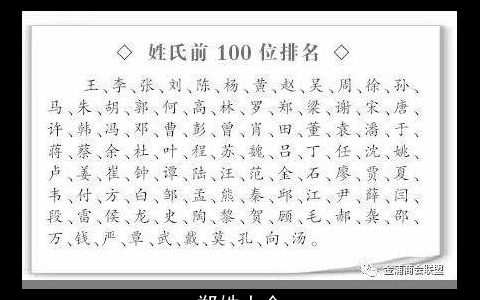 ◇ 姓氏前 100 位排名 ◇
王、李、张、刘、陈、杨、黄、赵、吴、周、徐、孙、
马、朱、胡、郭、何、高、林、罗、郑、梁、谢、宋、唐、
许、韩、冯、邓、曹、彭、曾、肖、田、董、袁、潘、于、
蒋、蔡、余、杜、叶、程、苏、魏、吕、丁、任、沈、姚、
卢、姜、崔、钟、谭、陆、汪、范、金、石、廖、贾、夏、
韦、付、方、白、邹、孟、熊、秦、邱、江、尹、薛、闫、
段、雷、侯、龙、史、陶、黎、贺、顾、毛、郝、龚、邵、
万、钱、严、覃、武、戴、莫、孔、向、汤。
金浦商会联盟